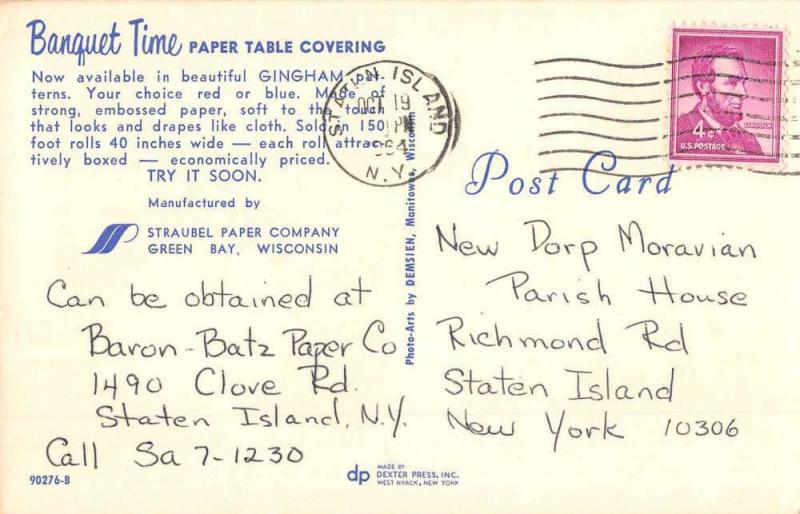 Banquet Time PAPER TABLE COVERING
Now available in beautiful GINGHAM pat-
terns. Your choice red or blue. Made of
strong, embossed paper, soft to the touch
that looks and drapes like cloth. Sold in 150
foot rolls 40 inches wide — each roll attrac-
tively boxed — economically priced.
TRY IT SOON.
Manufactured by
STRAUBEL PAPER COMPANY
GREEN BAY, WISCONSIN
Can be obtained at
Baron-Batz Paper Co
1490 Clove Rd.
Staten Island, N.Y.
Call Sa 7-1230
90276-B
STATEN ISLAND
OCT 19
PM
1964
N.Y.
Photo-Arts by DEMSIEN, Manitowoc, Wisconsin
LINCOLN
4¢
U.S. POSTAGE
Post Card
New Dorp Moravian
Parish House
Richmond Rd
Staten Island
New York 10306
dp
MADE BY
DEXTER PRESS, INC.
WEST NYACK, NEW YORK